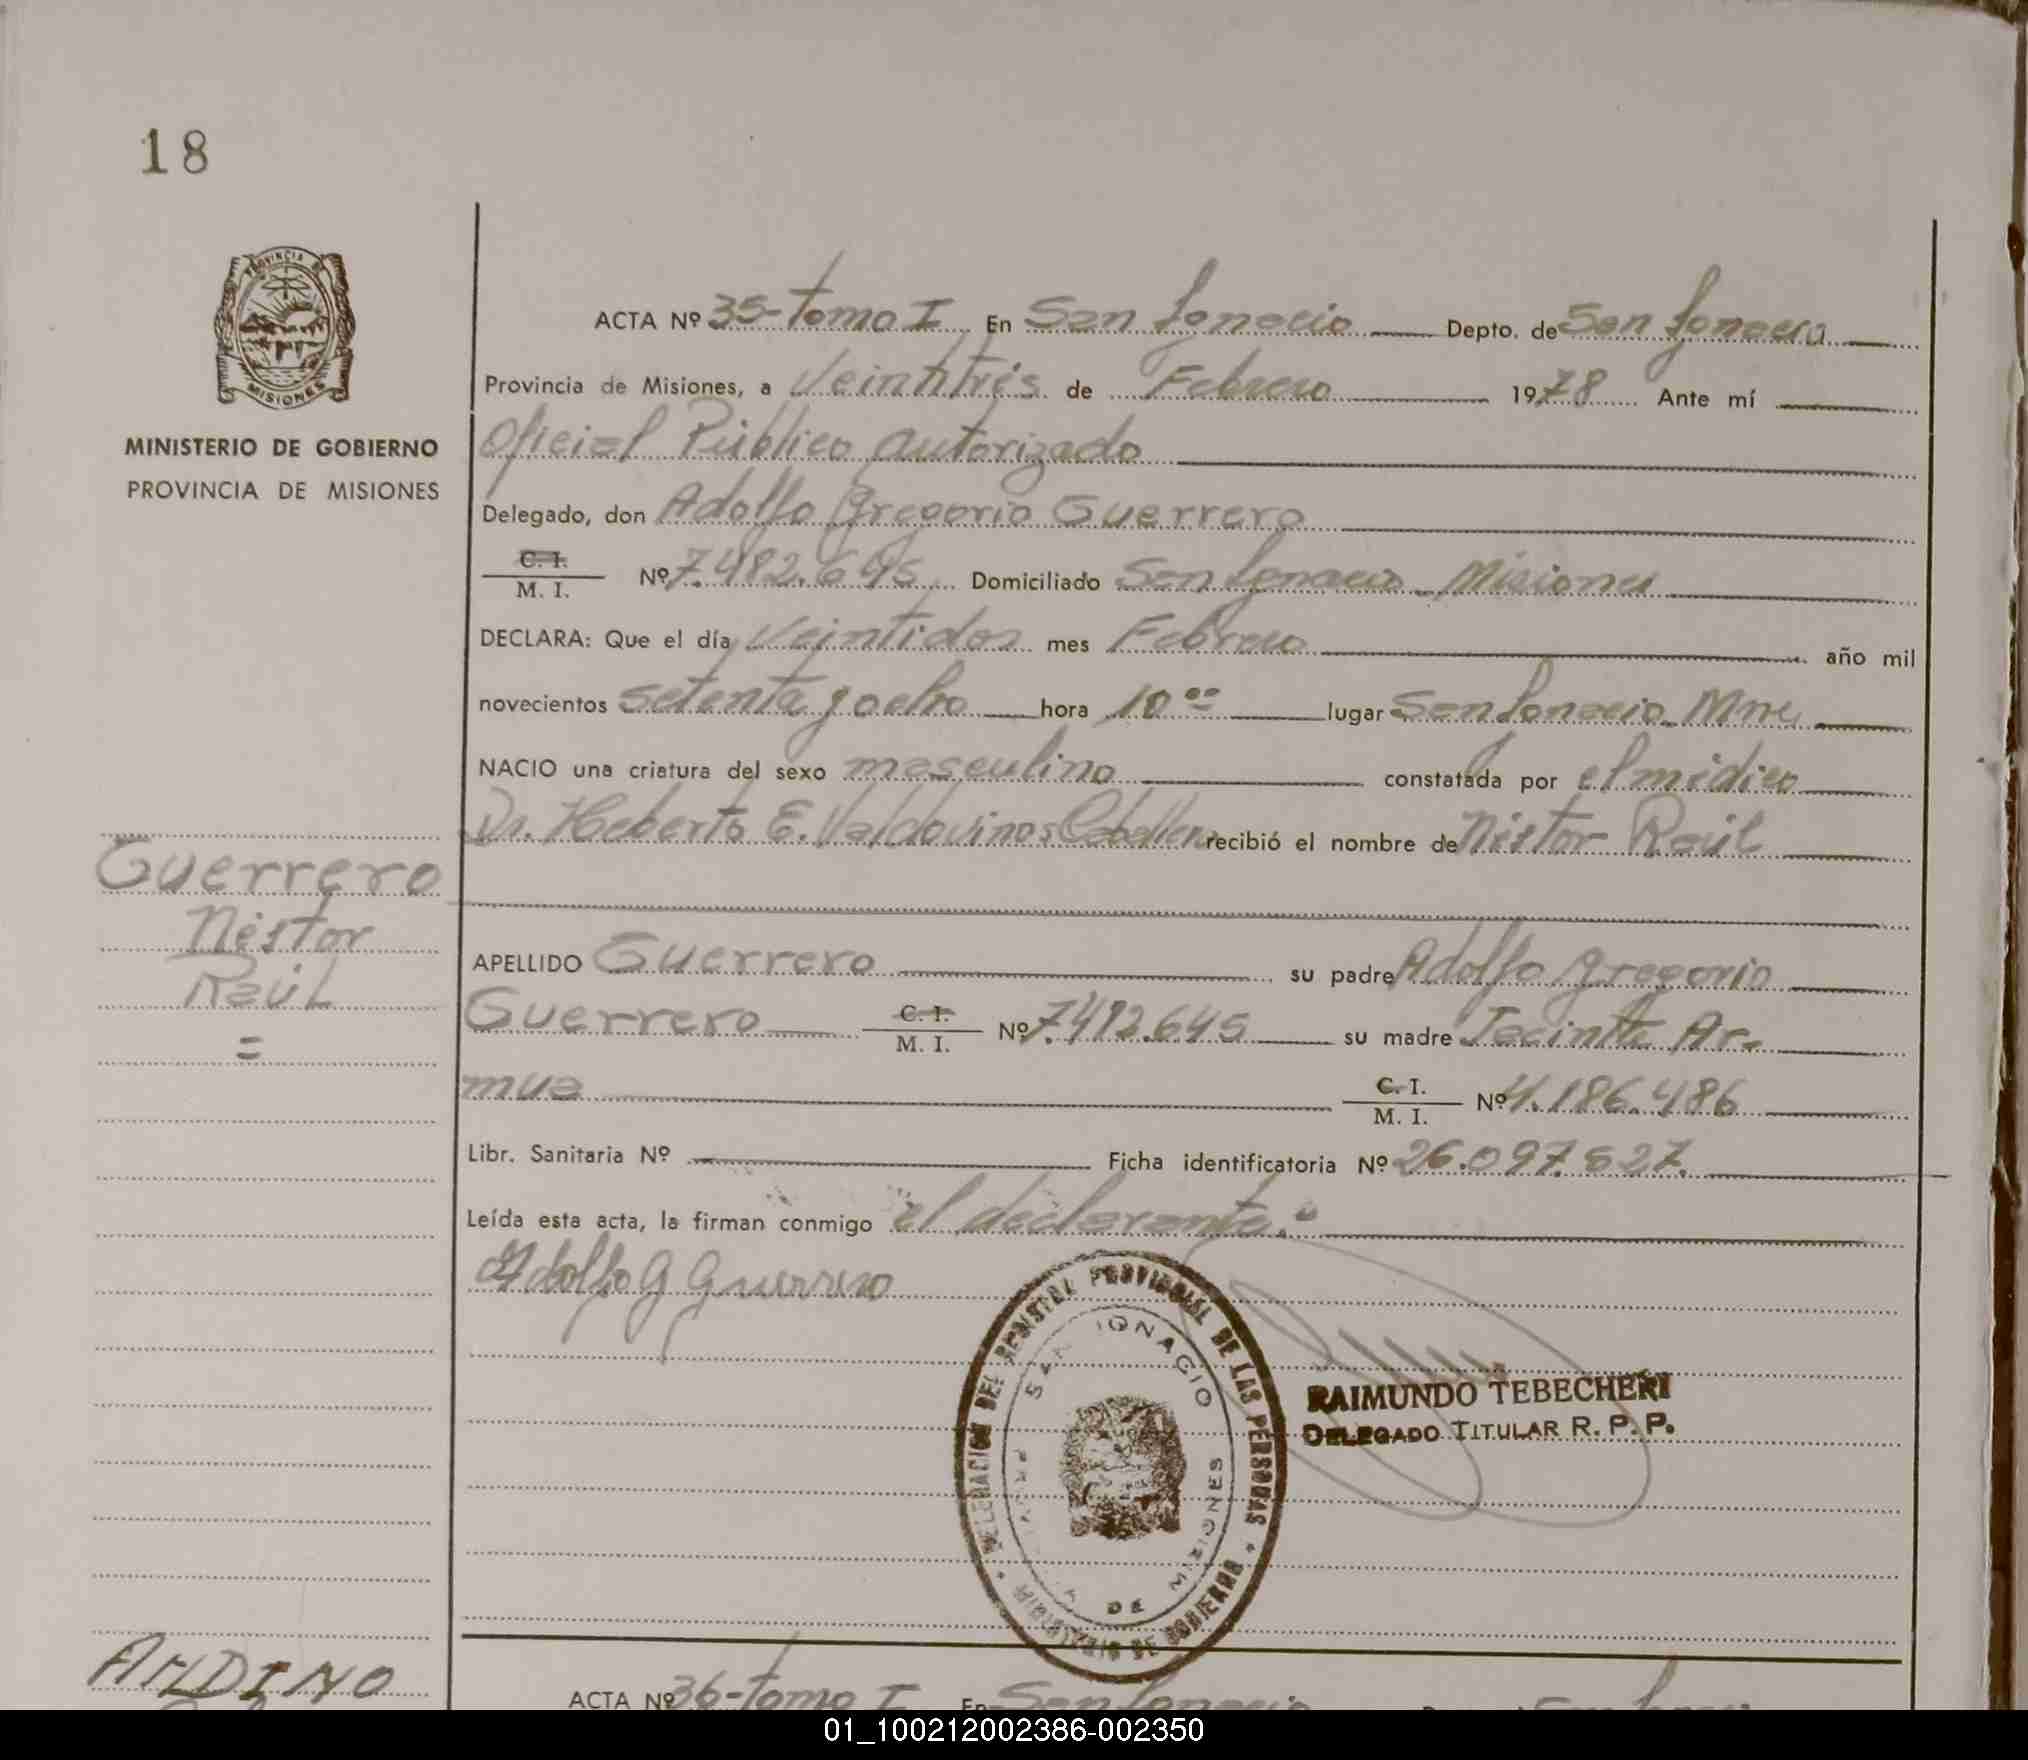 18
PROVINCIA DE
MISIONES
MINISTERIO DE GOBIERNO
PROVINCIA DE MISIONES
ACTA Nº 35-tomo I En San Ignacio Depto. de San Ignacio
Provincia de Misiones, a Veintitrés de Febrero 1978 Ante mí
Oficial Público autorizado
Delegado, don Adolfo Gregorio Guerrero
C. I.
M. I. Nº 7.482.645 Domiciliado San Ignacio Misiones
DECLARA: Que el día Veintidos mes Febrero año mil
novecientos setenta y ocho hora 10°° lugar San Ignacio Mnes
NACIO una criatura del sexo masculino constatada por el médico
Dr. Heberto E. Valdovinos Caballero recibió el nombre de Néstor Raúl
Guerrero
Néstor
Raúl
=
APELLIDO Guerrero su padre Adolfo Gregorio
Guerrero C. I.
M. I. Nº 7.482.645 su madre Jacinta Ar-
mua C. I.
M. I. Nº 4.186.486
Libr. Sanitaria Nº Ficha identificatoria Nº 26.097.627.
Leída esta acta, la firman conmigo el declarante.
Adolfo G Guerrero
DELEGACION DEL REGISTRO PROVINCIAL DE LAS PERSONAS
SAN IGNACIO
DE MISIONES
RAIMUNDO TEBECHERI
DELEGADO TITULAR R. P. P.
ANDINO
ACTA Nº 36-tomo I En San Ignacio
01_100212002386-002350